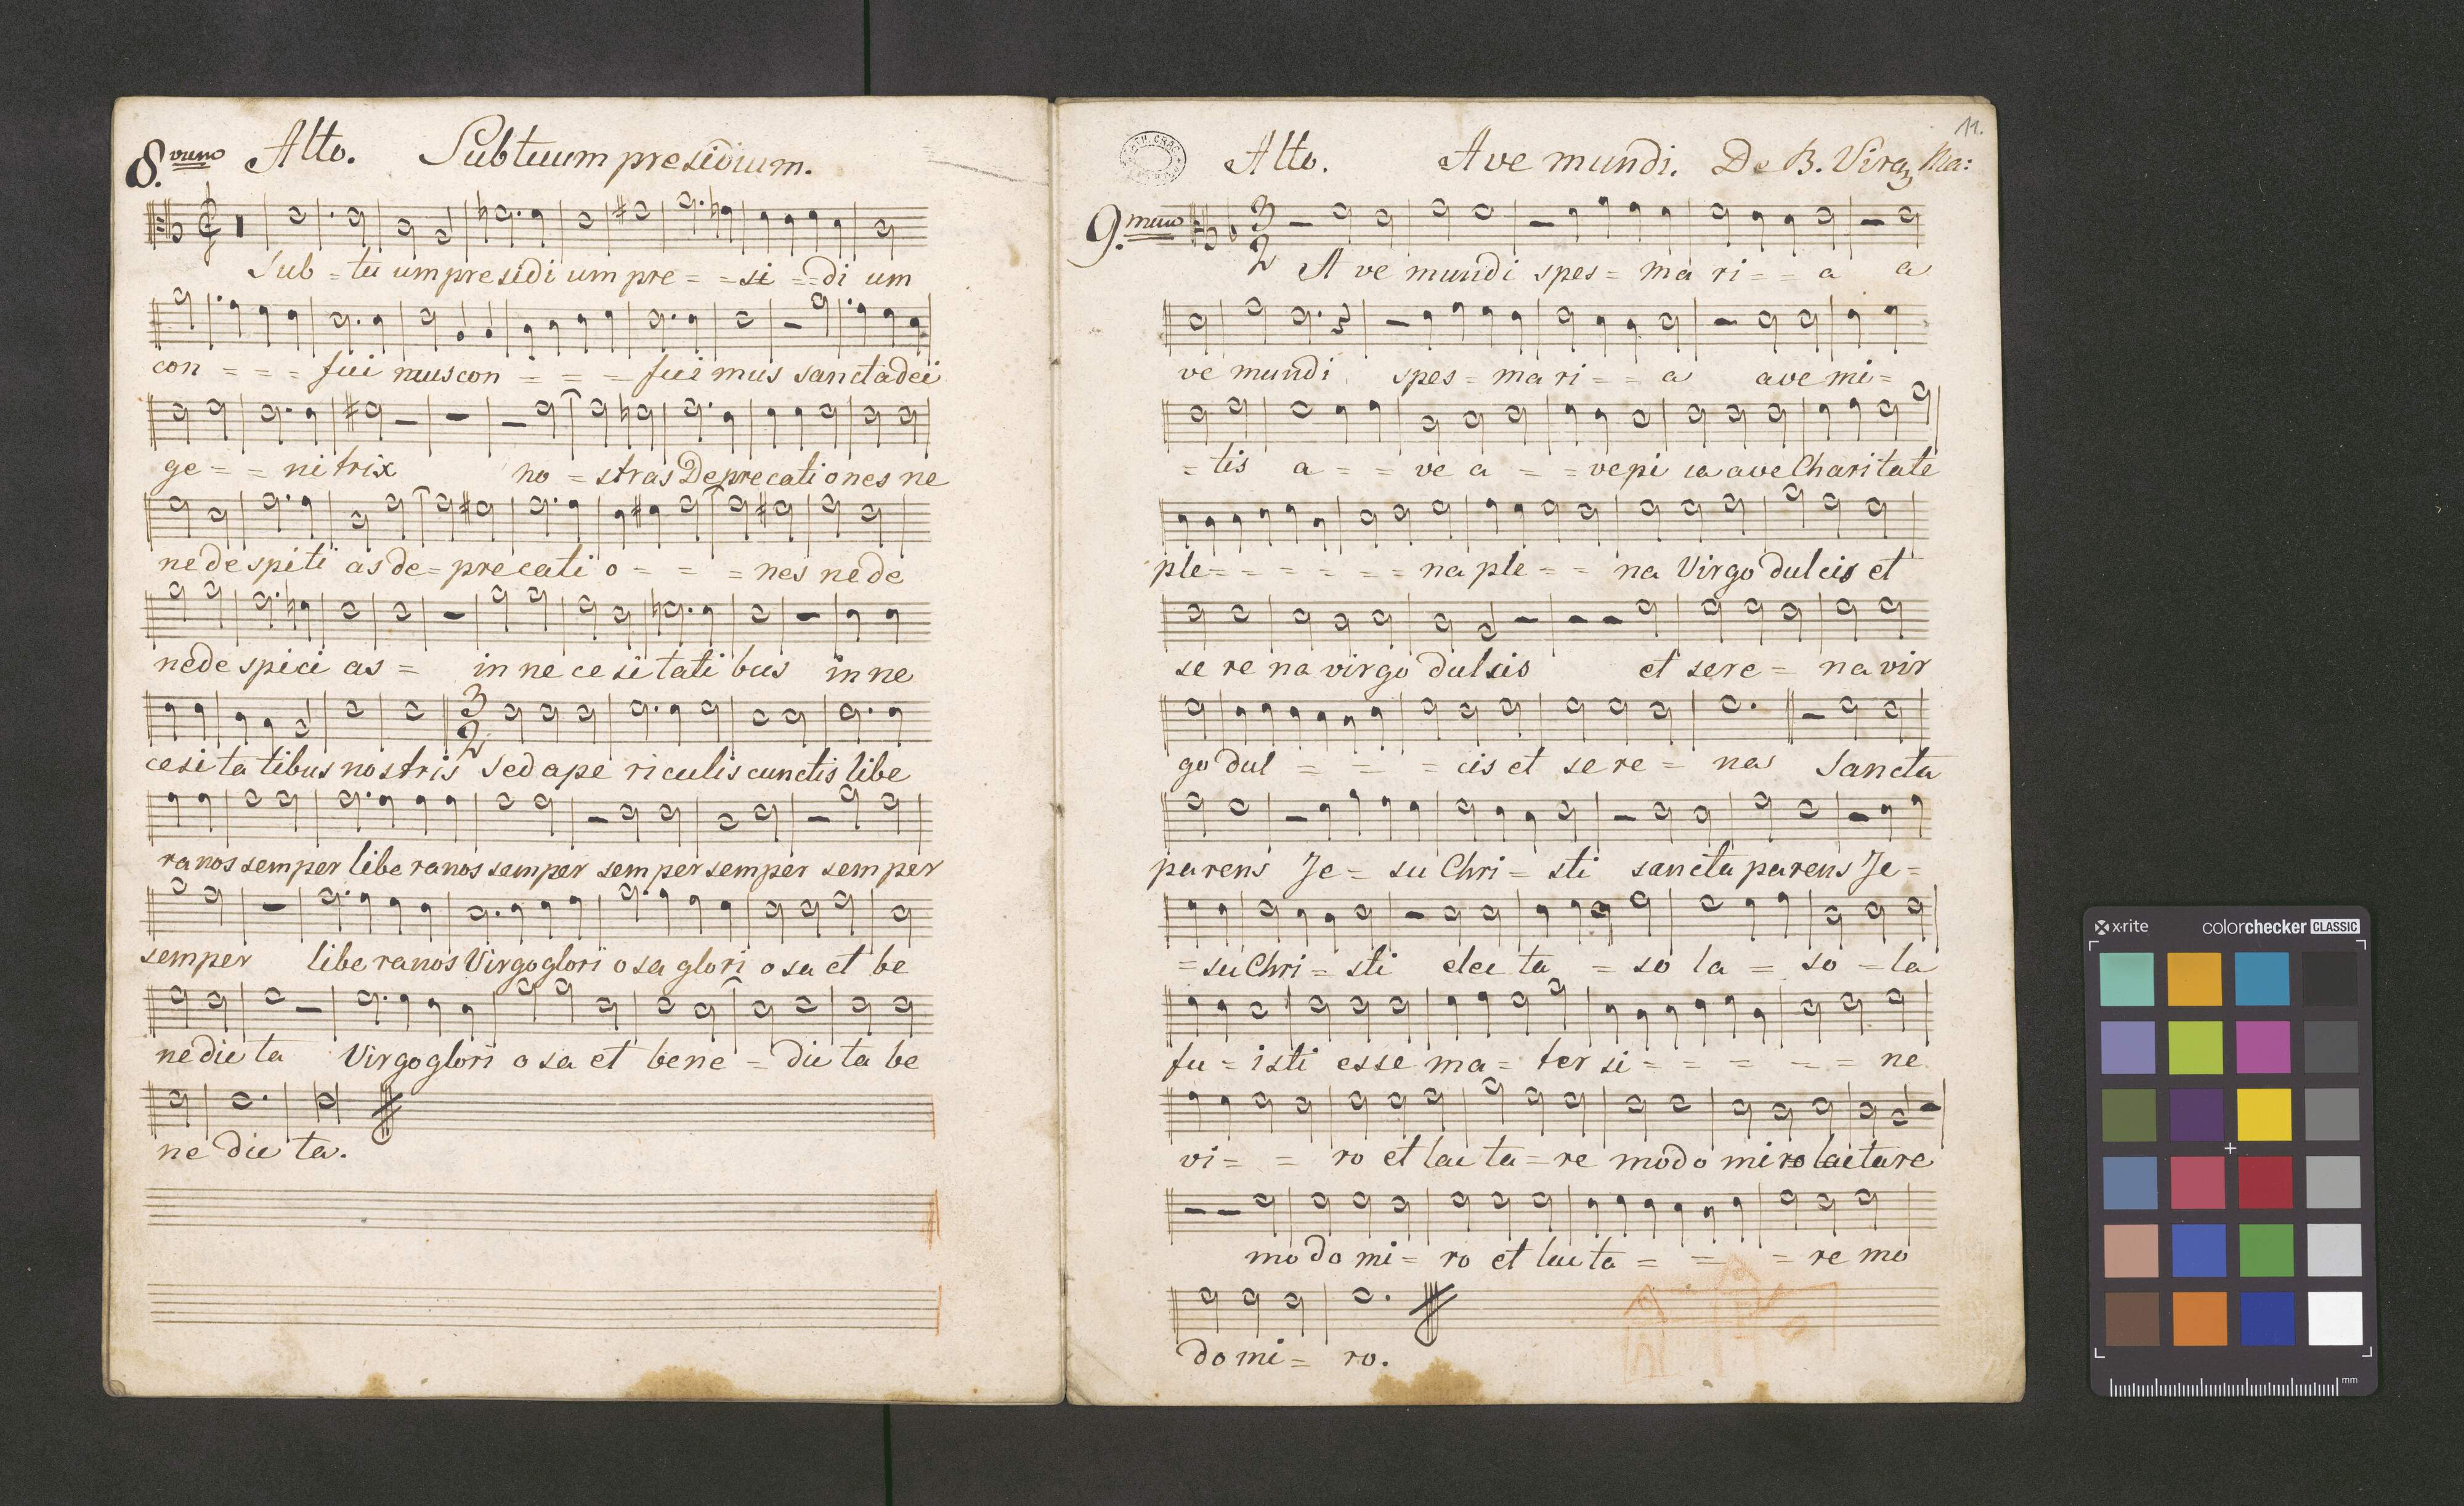 8.vuno Alto. Sub tuum presidium.
Sub = tu um presidi um pre = = si = = di um
con = = = fui mus con = = = fui mus sancta dei
ge = = ni trix no = stras Deprecationes ne
ne de spiti as de = precati o = = = nes ne de
ne de spici as = in ne ce si tati bus in ne
cesi ta tibus nostris sed a pe riculis cunctis libe
ra nos semper libe ra nos semper semper semper semper
semper libe ra nos Virgo glori o sa glori o sa et be
ne dic ta Virgo glori o sa et bene = dic ta be
ne dic ta.
11.
Alto. Ave mundi. De B. Virg Ma:
9.muno
3
2
A ve mundi spes = ma ri = = a a
ve mundi spes = ma ri = = a ave mi =
= tis a = = ve a = = ve pi ia ave Charitate
ple = = = = = = na ple = = na Virgo dulcis et
se re na virgo dulsis et sere = na vir
go dul = = = cis et se re = na Sancta
parens Je = su Chri = sti sancta parens Je =
= su Chri = sti elec ta = so la = so = la
fu = isti esse ma = ter si = = = = = ne
vi = = ro et lac ta = re modo miro lactare
mo do mi = ro et lac ta = = = re mo
do mi = ro.
x·rite colorchecker CLASSIC
mm